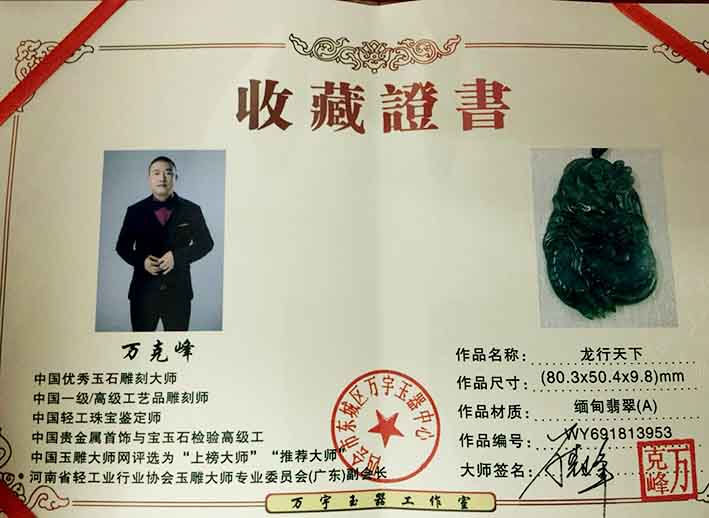 收藏證書
万克峰
中国优秀玉石雕刻大师
中国一级/高级工艺品雕刻师
中国轻工珠宝鉴定师
中国贵金属首饰与宝玉石检验高级工
中国玉雕大师网评选为“上榜大师” “推荐大师”
河南省轻工业行业协会玉雕大师专业委员会(广东)副会长
四会市东城区万宇玉器中心
作品名称: 龙行天下
作品尺寸: (80.3x50.4x9.8)mm
作品材质: 缅甸翡翠(A)
作品编号: WY691813953
大师签名:
万克峰
万宇玉器工作室